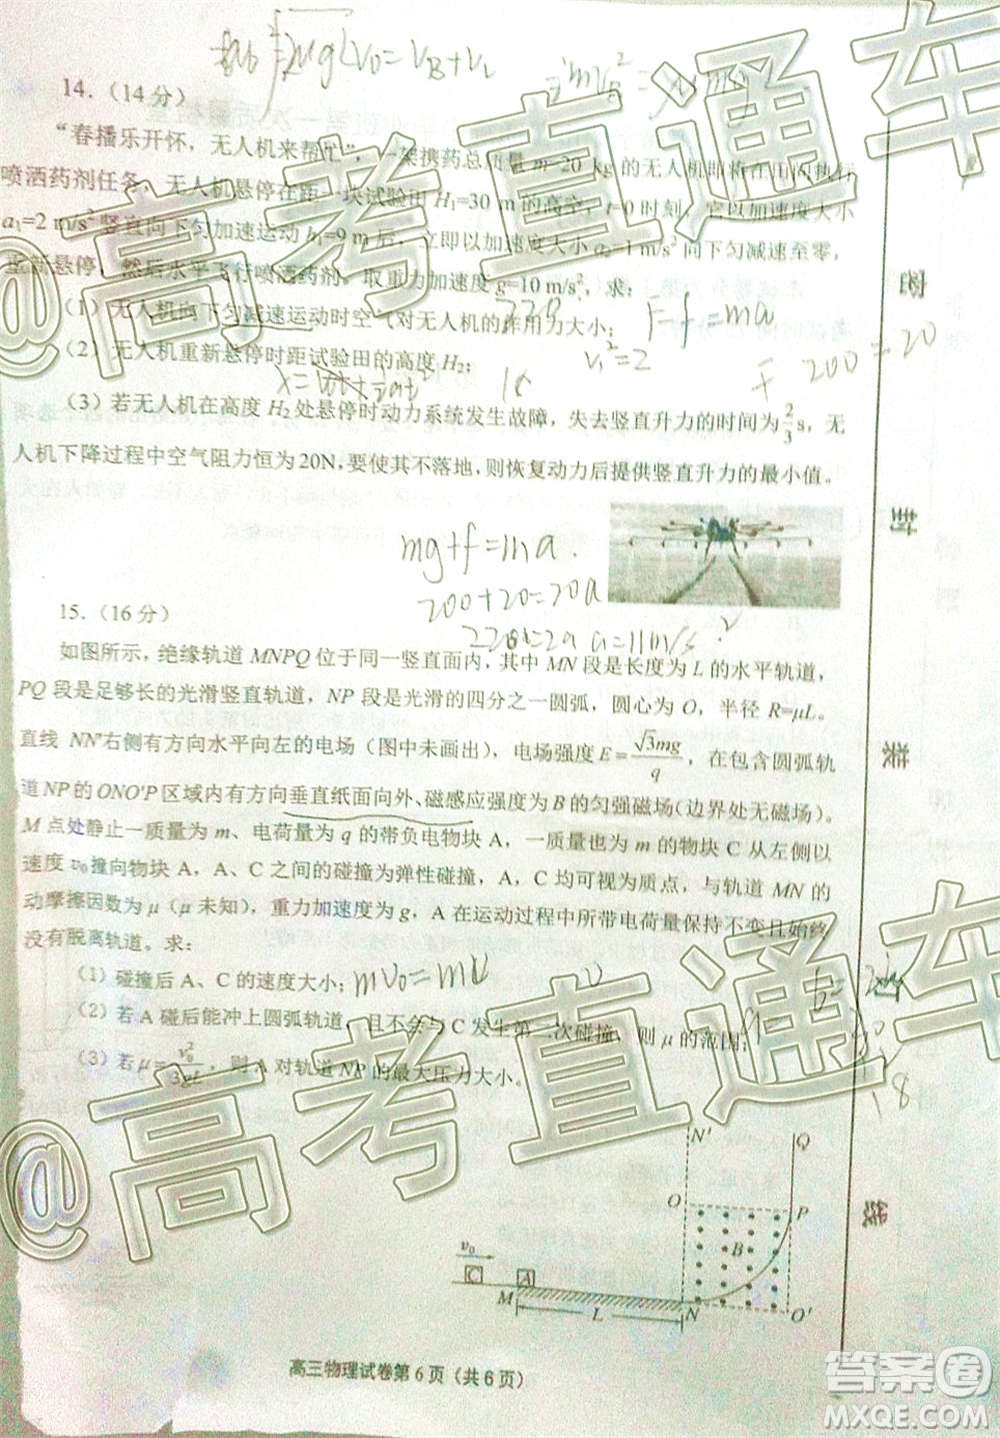 √2μgL v₀=v_B+v_L
½mv_B²=μmg
14.（14 分）
“春播乐开怀，无人机来帮忙”，一架携药总质量 m=20 kg的无人机即将在田间执行
喷洒药剂任务，无人机悬停在距一块试验田 H₁=30 m的高空，t=0 时刻，它以加速度
a₁=2 m/s² 竖直向下匀加速运动 h₁=9 m后，立即以加速度大小 a₂=1 m/s² 向下匀减速至零，
重新悬停，然后水平飞行喷洒药剂。取重力加速度 g=10 m/s²，求：
（1）无人机向下匀减速运动时空气对无人机的作用力大小；
220 F-f=ma
（2）无人机重新悬停时距试验田的高度 H₂；
v₁²=2 F 200=20
（3）若无人机在高度 H₂ 处悬停时动力系统发生故障，失去竖直升力的时间为2/3s，无
人机下降过程中空气阻力恒为20N，要使其不落地，则恢复动力后提供竖直升力的最小值。
mg+f=ma.
200+20=20a
a=11m/s²
15.（16 分）
如图所示，绝缘轨道 MNPQ 位于同一竖直面内，其中 MN 段是长度为 L 的水平轨道，
PQ 段是足够长的光滑竖直轨道，NP 段是光滑的四分之一圆弧，圆心为 O，半径 R=μL。
直线 NN′右侧有方向水平向左的电场（图中未画出），电场强度 E=√3mg/q，在包含圆弧轨
道 NP 的 ONO′P 区域内有方向垂直纸面向外、磁感应强度为 B 的匀强磁场（边界处无磁场）。
M 点处静止一质量为 m、电荷量为 q 的带负电物块 A，一质量也为 m 的物块 C 从左侧以
速度 v₀ 撞向物块 A，A、C 之间的碰撞为弹性碰撞，A、C 均可视为质点，与轨道 MN 的
动摩擦因数为 μ（μ 未知），重力加速度为 g，A 在运动过程中所带电荷量保持不变且始终
没有脱离轨道。求：
（1）碰撞后 A、C 的速度大小；
mv₀=mv
（2）若 A 碰后能冲上圆弧轨道，且不会与 C 发生第二次碰撞，则 μ 的范围；
（3）若 μ=v₀²/3gL，则 A 对轨道 NP 的最大压力大小。
18
N′ Q
O P
B
v₀
C A
M L N O′
高三物理试卷第 6 页（共 6 页）
圈
封
装
订
线
@高考直通车
@高考直通车
答案圈
MXQE.COM